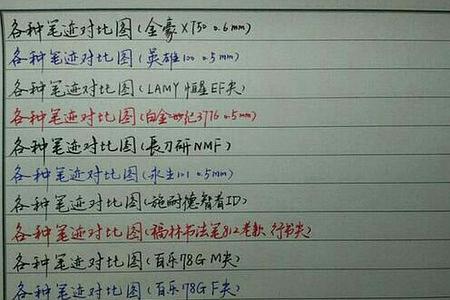 各种笔迹对比图(金豪X750 0.6mm)
各种笔迹对比图(英雄100 0.5mm)
各种笔迹对比图(LAMY 恒星EF尖)
各种笔迹对比图(白金世纪3776 0.5mm)
各种笔迹对比图(長刀研NMF)
各种笔迹对比图(永生101 0.5mm)
各种笔迹对比图(施耐德智者ID)
各种笔迹对比图(福林书法笔812老款 行书尖)
各种笔迹对比图(百乐78G M尖)
各种笔迹对比图(百乐78G F尖)